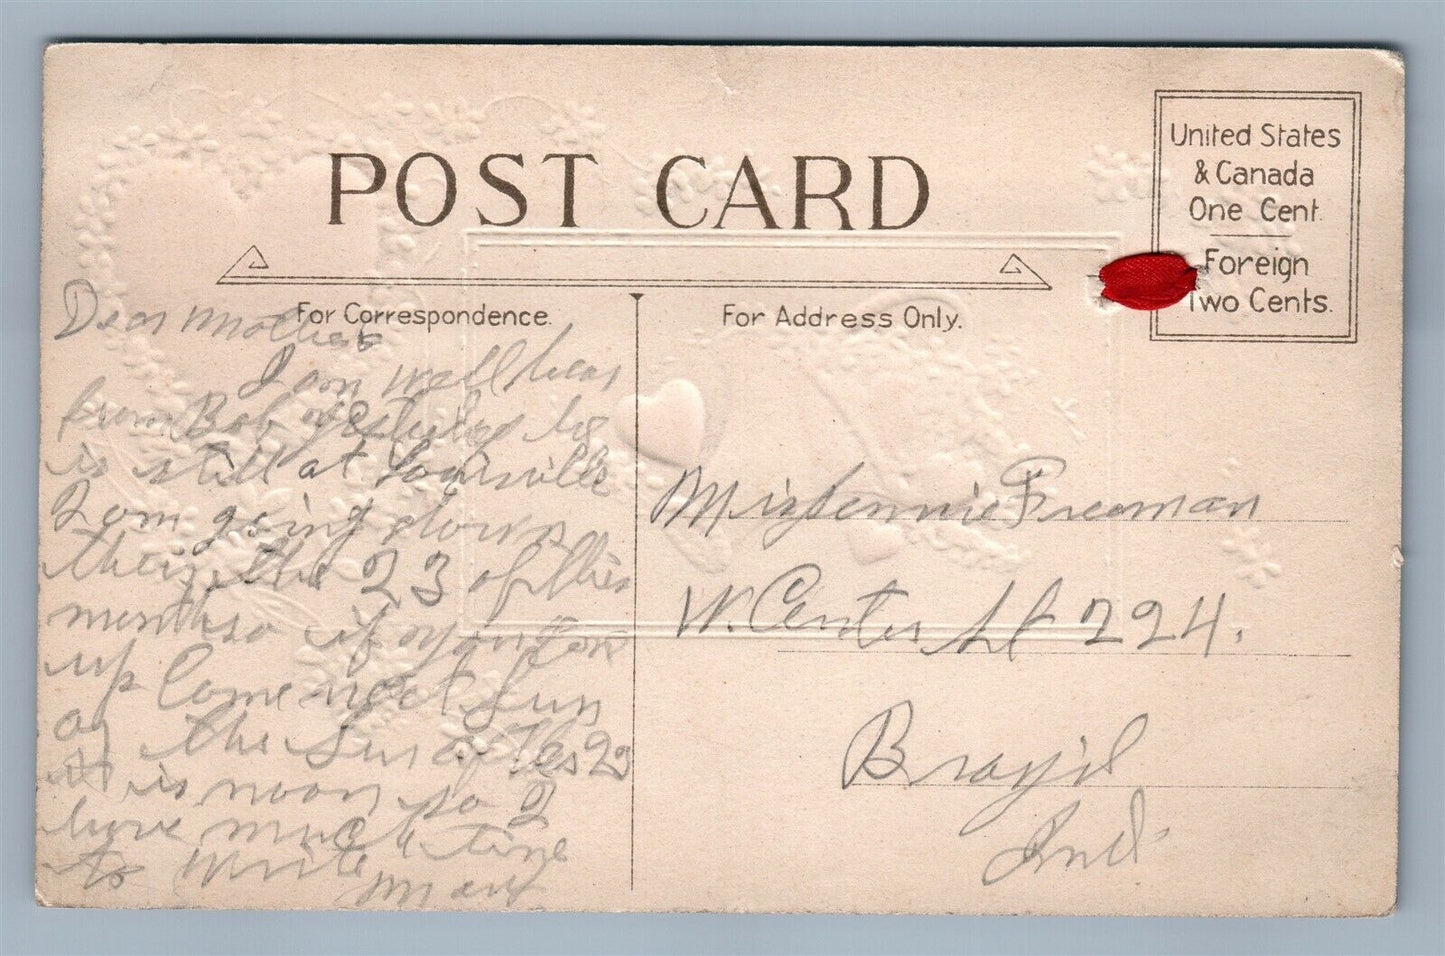 POST CARD
United States
& Canada
One Cent.
Foreign
Two Cents.
For Correspondence.
For Address Only.
Dear Mother
I am well hear
from Bob yesterday he
is still at Louisville
I am going down
the 23 of this
month so if you
up Come next Sun
the Sun 23
it is noon so I
have much time
to write
Mary
Freeman
W. Center St 224.
Brazil
Ind.